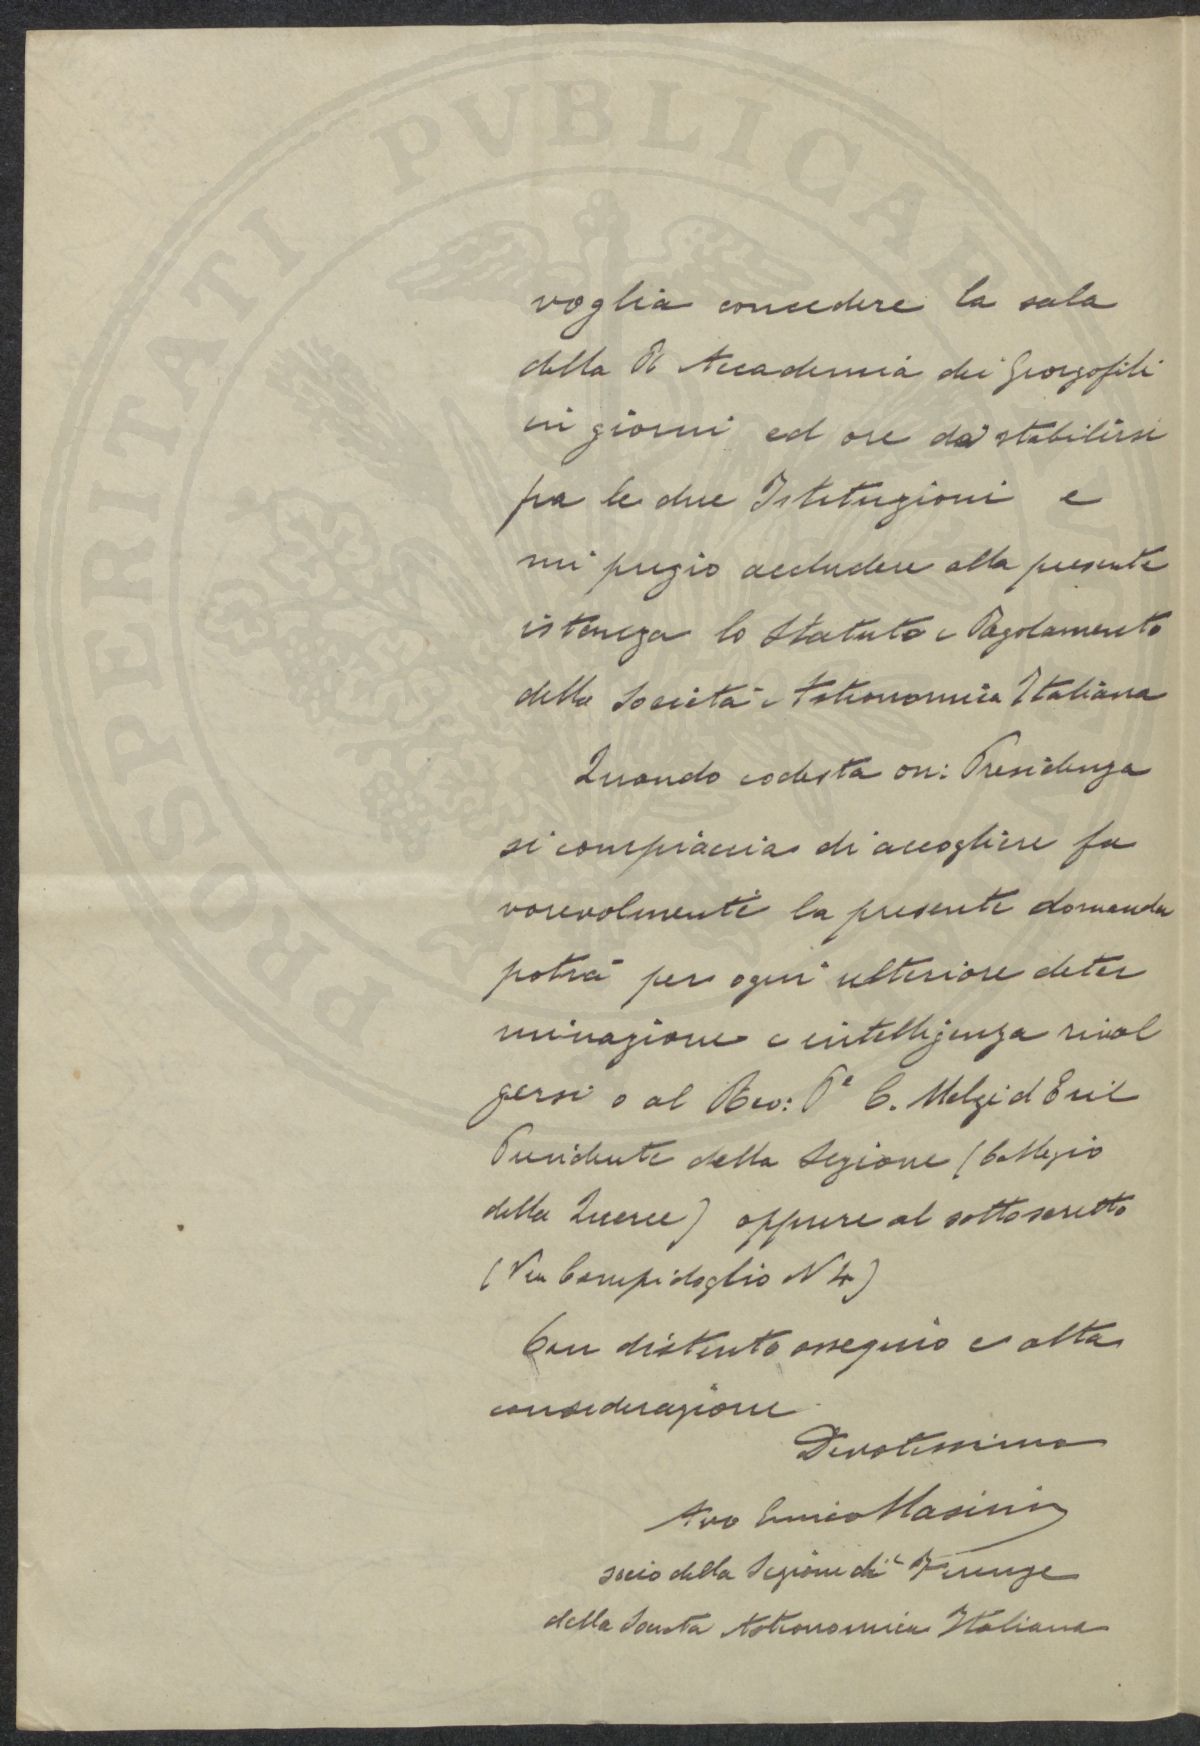 voglia concedere la sala
della R Accademia dei Georgofili
in giorni ed ore da stabilirsi
fra le due Istituzioni e
mi pregio accludere alla presente
istanza lo Statuto e Regolamento
della Società Astronomica Italiana
Quando codesta on: Presidenza
si compiaccia di accogliere fa
vorevolmente la presente domanda
potrà per ogni ulteriore deter
minazione e intelligenza rivol
gersi o al Rev: Pe C. Melzi d Eril
Presidente della Sezione (Collegio
della Querce) oppure al sottoscritto
(Via Campidoglio N 4)
Con distinto ossequio e alta
considerazione
Devotissimo
Avv Enrico Masini
socio della Sezione di Firenze
della Società Astronomica Italiana
PROSPERITATI PVBLICAE